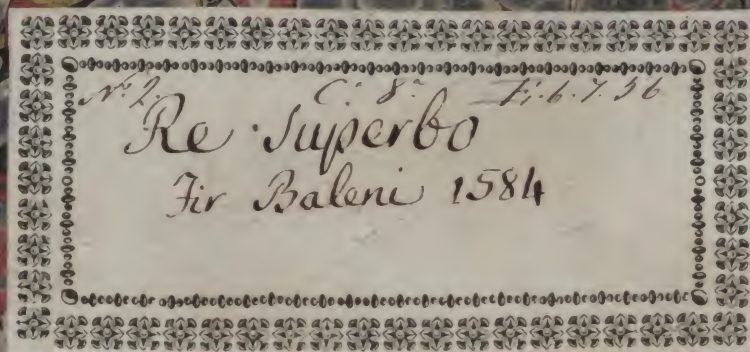 N.º 2. C. 8.º Fi. 6. 7. 56
Re Superbo
Fir Baleni 1584